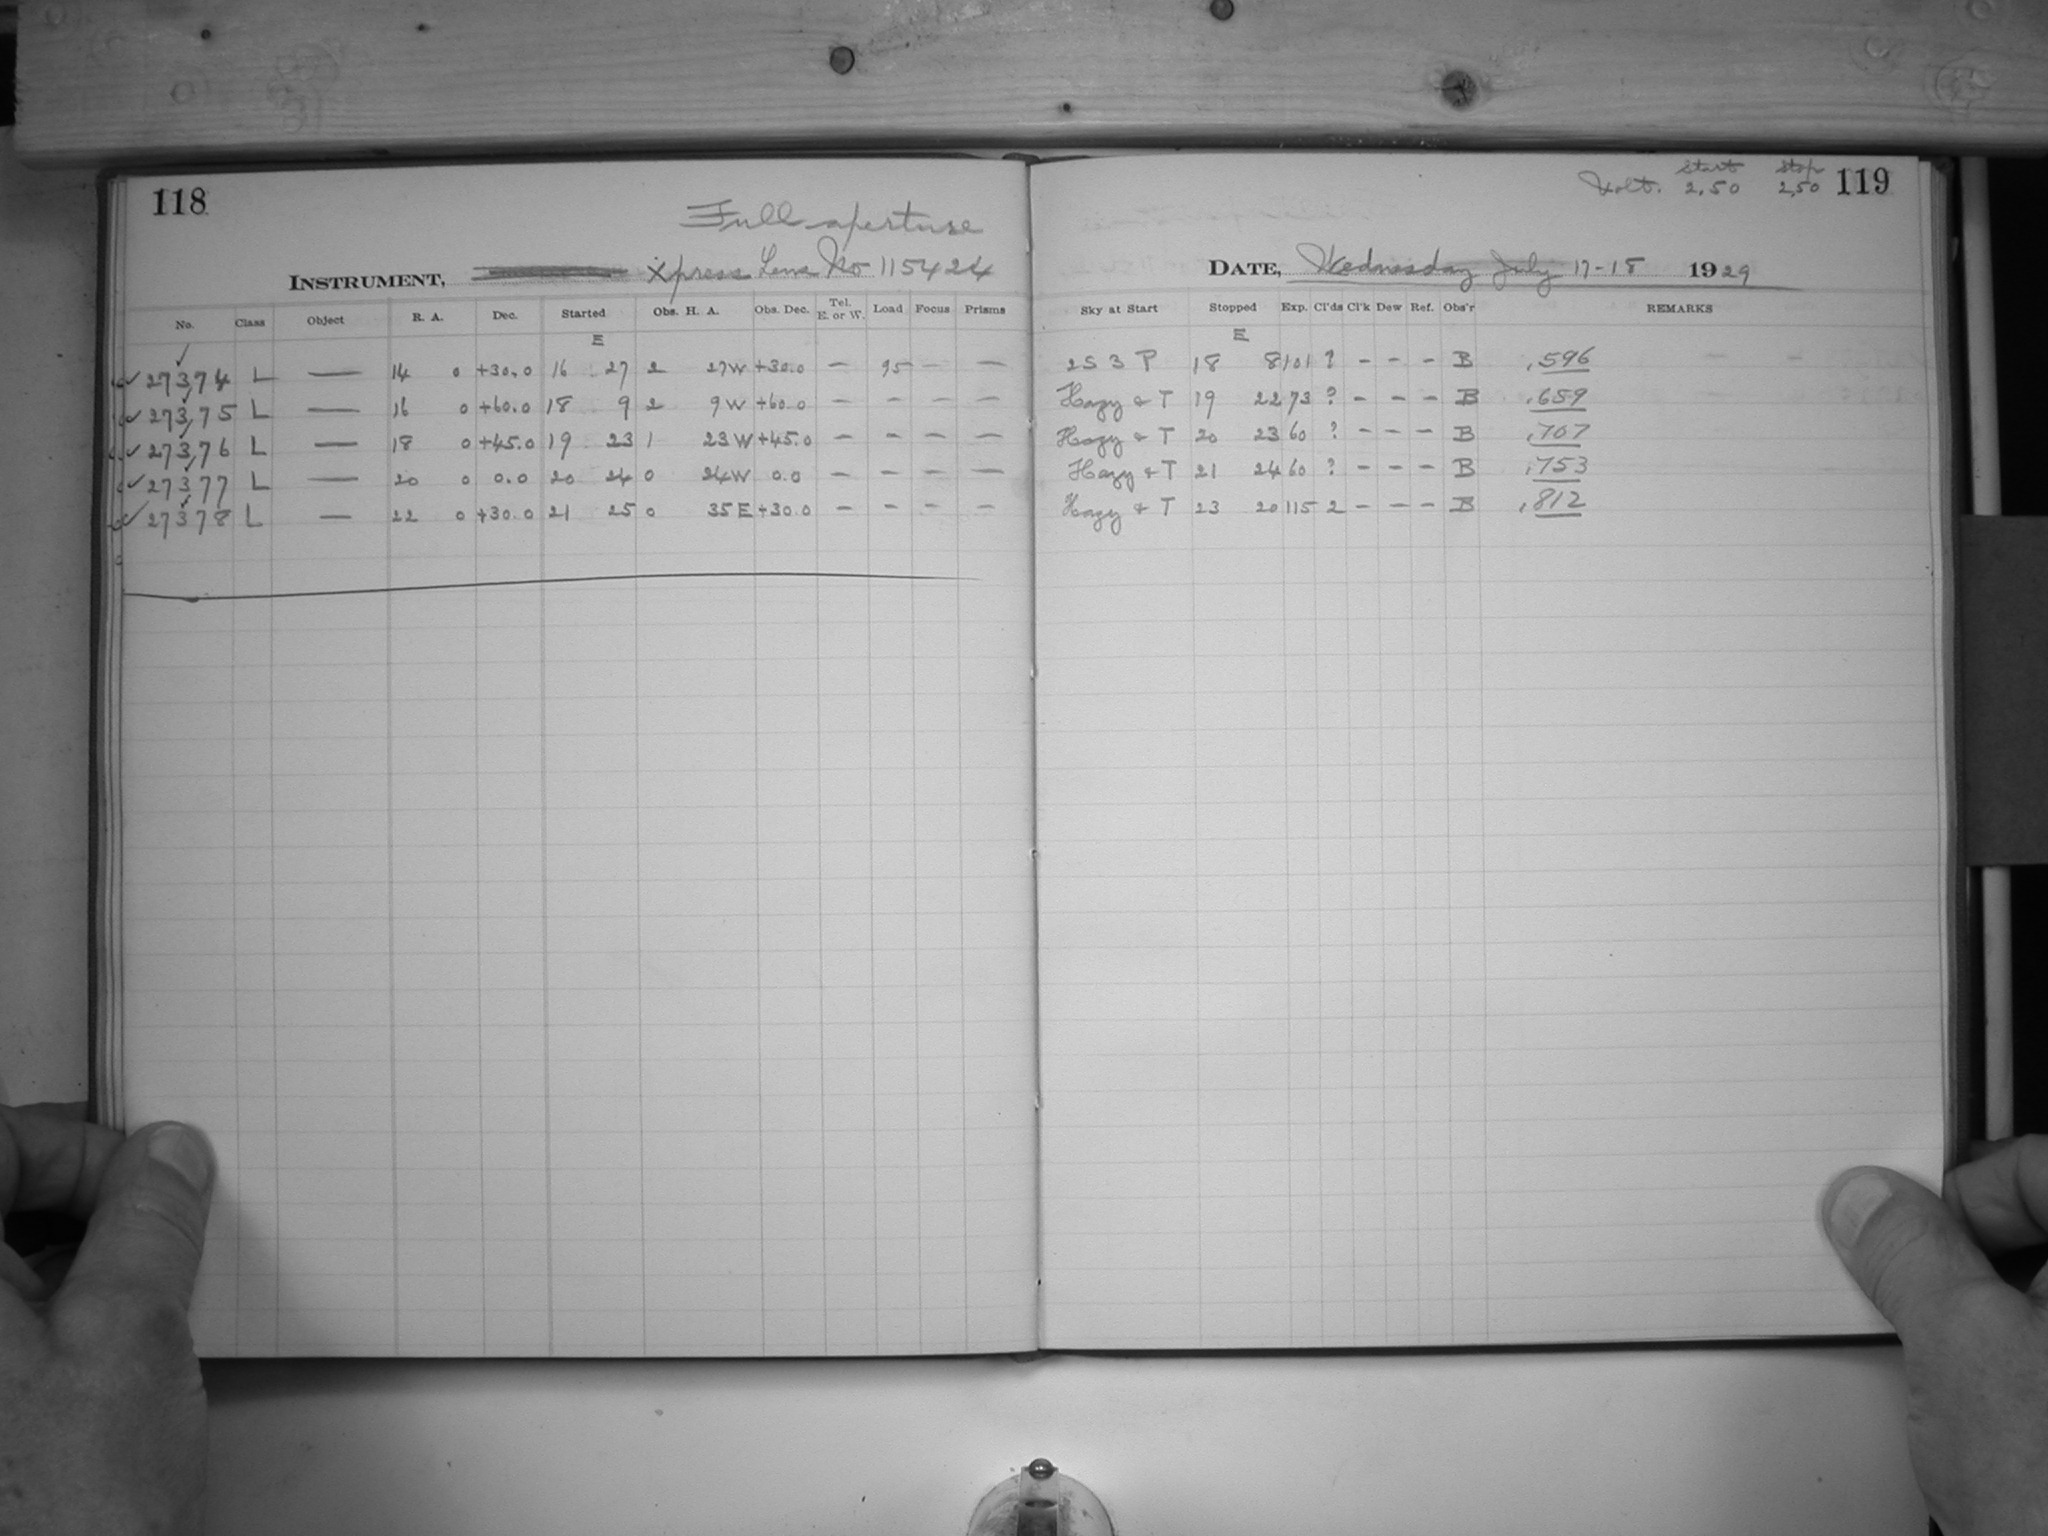 118
Full aperture
INSTRUMENT, Xpress Lens No 115424
No. Class Object R. A. Dec. Started Obs. H. A. Obs. Dec. Tel. E. or W. Load Focus Prisms
E
✓ 27374 L — 14 0 +30.0 16 27 2 27W +30.0 — 95 — —
✓ 27375 L — 16 0 +60.0 18 9 2 9W +60.0 — — — —
✓ 27376 L — 18 0 +45.0 19 23 1 23W +45.0 — — — —
✓ 27377 L — 20 0 0.0 20 24 0 24W 0.0 — — — —
✓ 27378 L — 22 0 +30.0 21 25 0 35E +30.0 — — — —
Start Stop
Volt. 2,50 2,50 119
DATE, Wednesday July 17-18 1929
Sky at Start Stopped Exp. Cl'ds Cl'k Dew Ref. Obs'r REMARKS
E
2S 3 P 18 8 101 ? — — — B .596
Hazy & T 19 22 73 ? — — — B .659
Hazy & T 20 23 60 ? — — — B .707
Hazy & T 21 24 60 ? — — — B .753
Hazy & T 23 20 115 2 — — — B .812